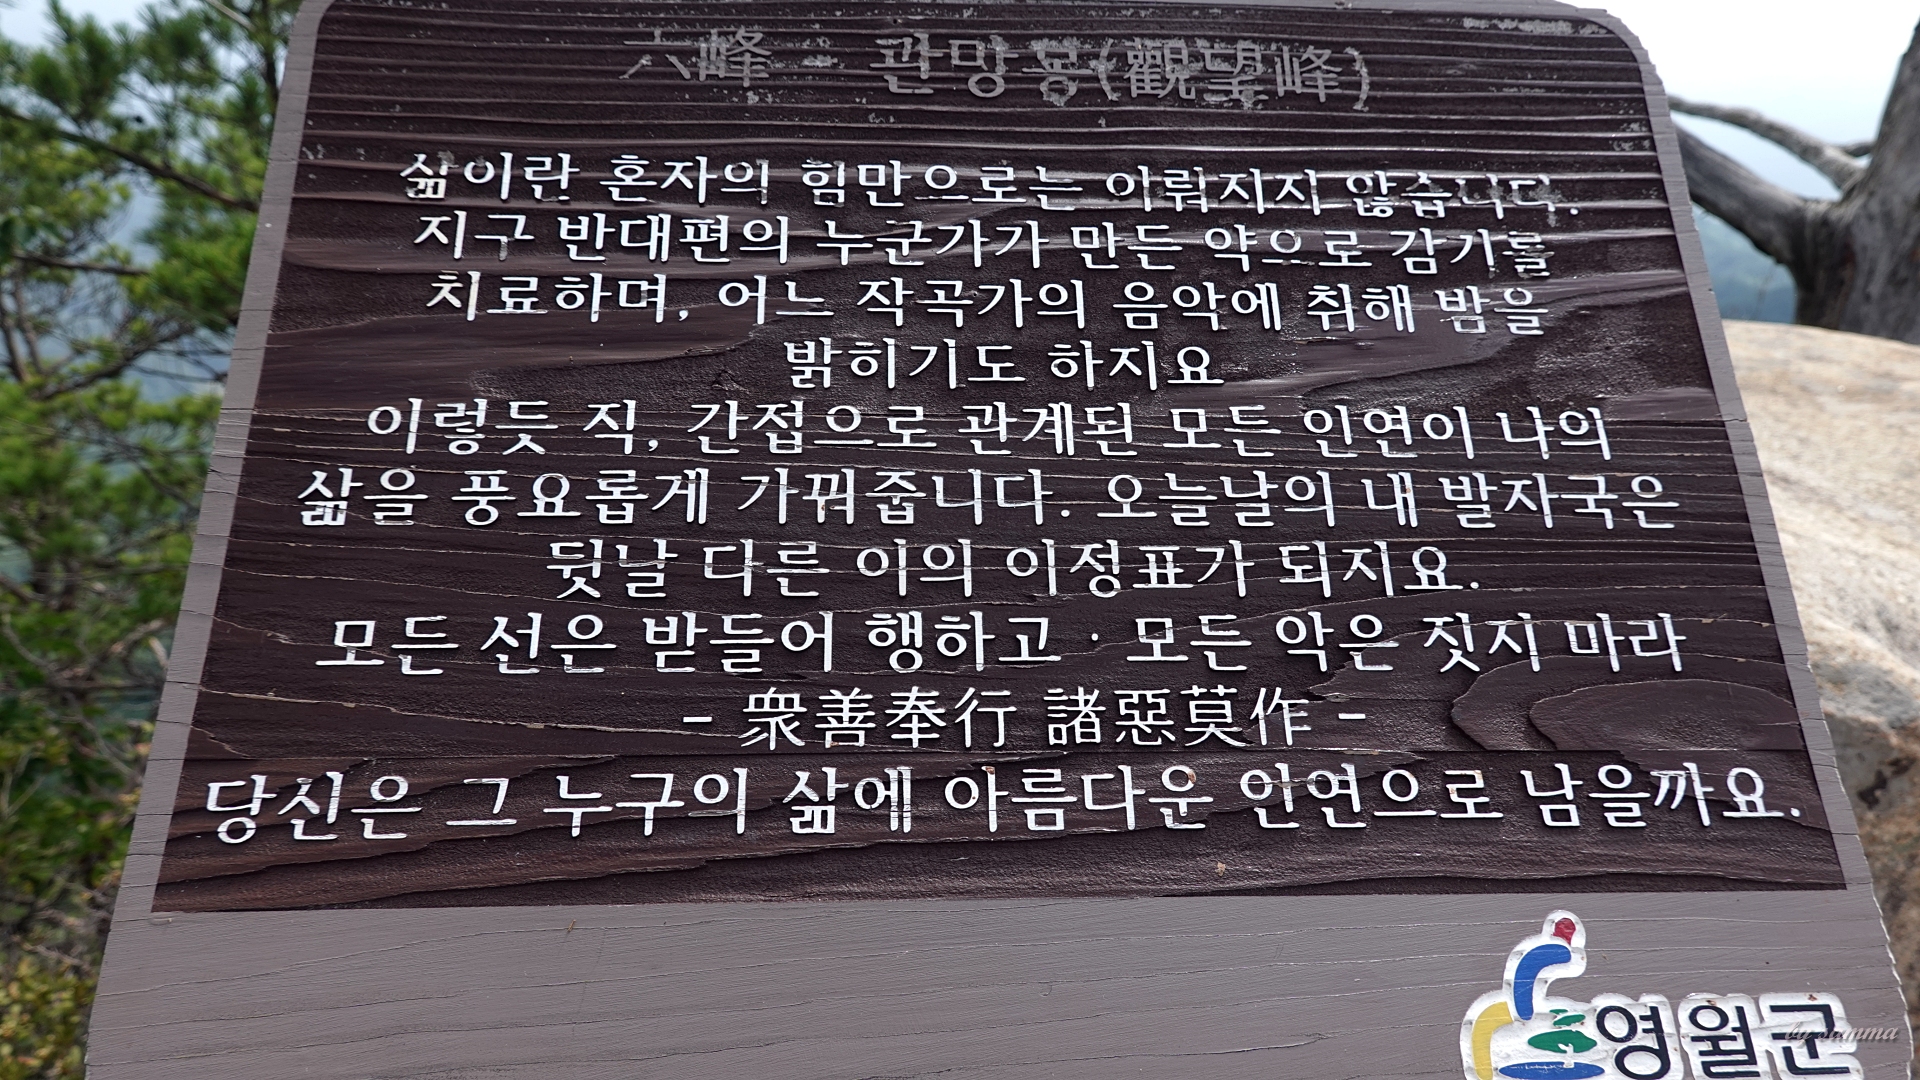 六峰 - 관망봉(觀望峰)
삶이란 혼자의 힘만으로는 이뤄지지 않습니다.
지구 반대편의 누군가가 만든 약으로 감기를
치료하며, 어느 작곡가의 음악에 취해 밤을
밝히기도 하지요
이렇듯 직, 간접으로 관계된 모든 인연이 나의
삶을 풍요롭게 가꿔줍니다. 오늘날의 내 발자국은
뒷날 다른 이의 이정표가 되지요.
모든 선은 받들어 행하고 · 모든 악은 짓지 마라
- 衆善奉行 諸惡莫作 -
당신은 그 누구의 삶에 아름다운 인연으로 남을까요.
영월군
by summa